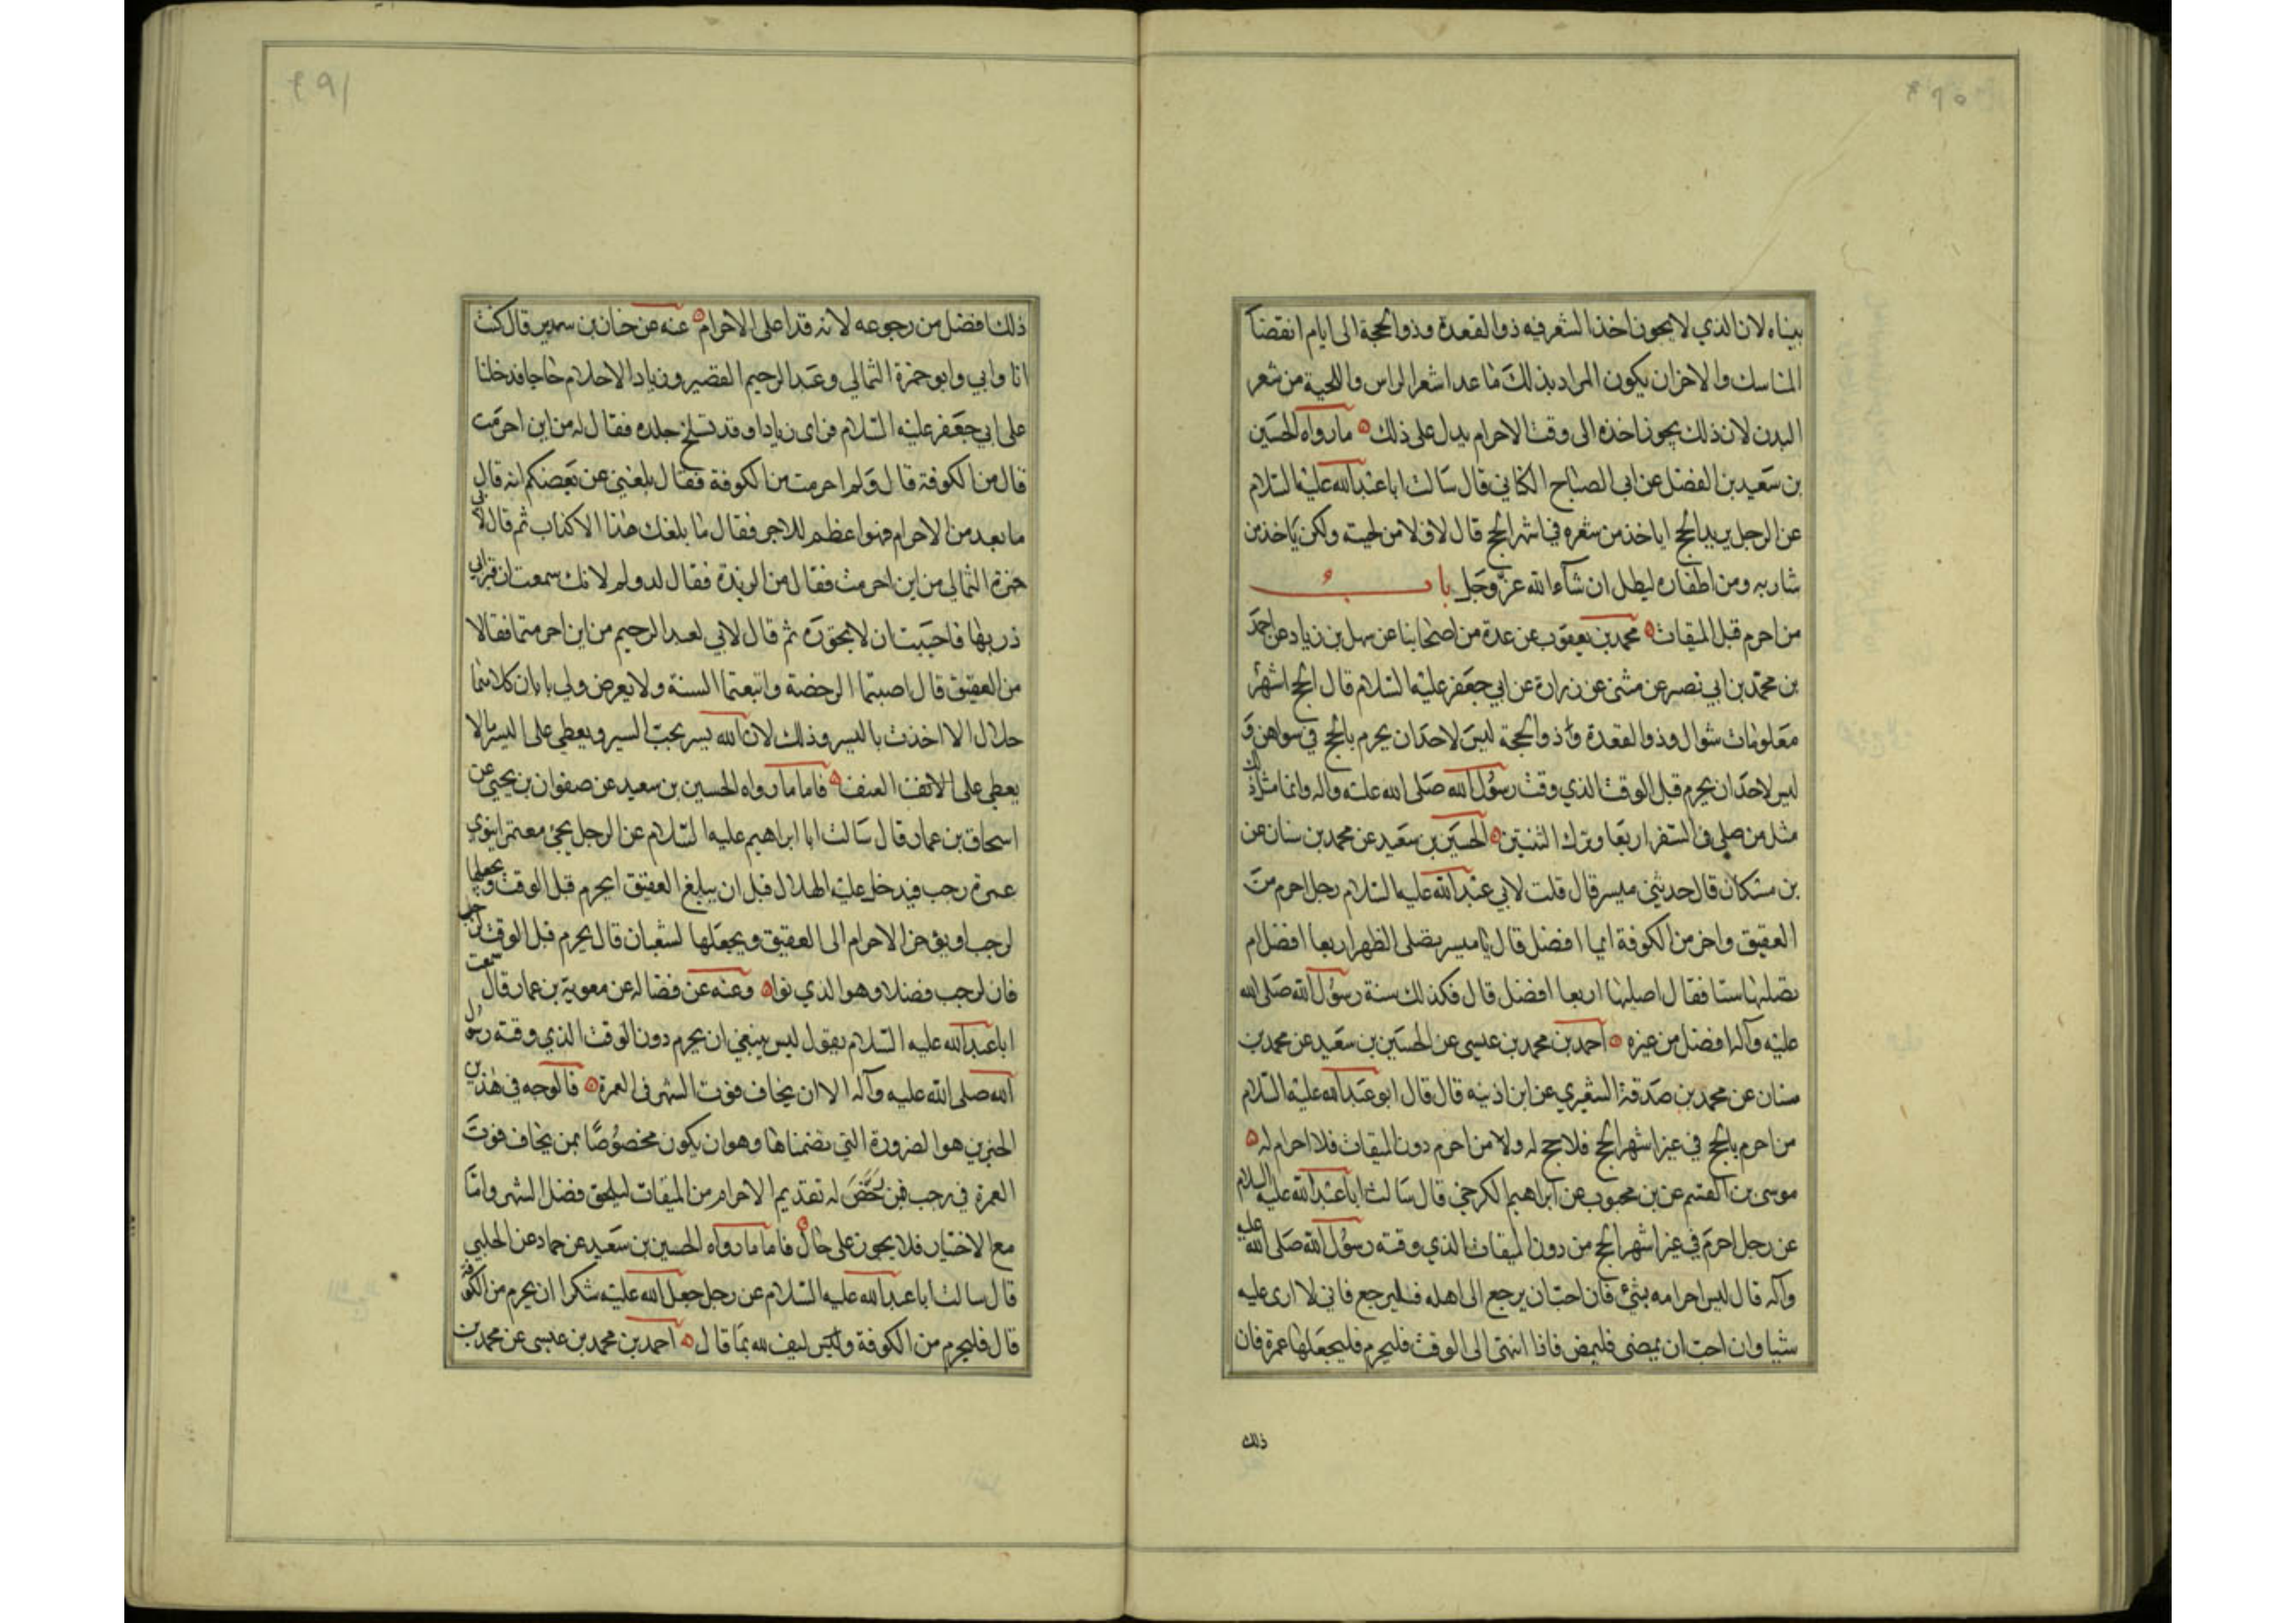 بيناه لان الذي لا يجوز اخذ الشعر فيه ذو القعدة وذو الحجة الى ايام انقضآ
المناسك والاخر ان يكون المراد بذلك ما عدا شعر الراس واللحية من شعر
البدن لان ذلك يجوز اخذه الى وقت الاحرام يدل على ذلك ما رواه الحسين
بن سعيد بن الفضل عن ابي الصباح الكناني قال سالت ابا عبد الله عليه السلام
عن الرجل يريد الحج اياخذ من شعره في اشهر الحج قال لا ولا من لحيته ولكن ياخذ من
شاربه ومن اظفاره ليطل ان شآء الله عز وجل باب
من احرم قبل الميقات محمد بن يعقوب عن عدة من اصحابنا عن سهل بن زياد عن احمد
بن محمد بن ابي نصر عن مثنى عن زرارة عن ابي جعفر عليه السلام قال الحج اشهر
معلومات شوال وذو القعدة وذو الحجة ليس لاحد ان يحرم بالحج في سواهن و
ليس لاحد ان يحرم قبل الوقت الذي وقت رسول الله صلى الله عليه واله وانما مثل ذلك
مثل من صلى في السفر اربعا وترك الثنتين الحسين بن سعيد عن محمد بن سنان عن
بن مسكان قال حدثني ميسر قال قلت لابي عبد الله عليه السلام رجل احرم من
العقيق واخر من الكوفة ايما افضل قال يا ميسر تصلى الظهر اربعا افضل ام
تصليها ستا فقال اصليها اربعا افضل قال فكذلك سنة رسول الله صلى الله
عليه وآله افضل من غيره احمد بن محمد بن عيسى عن الحسين بن سعيد عن محمد بن
سنان عن محمد بن صدقة الشعيري عن ابن اذينه قال قال ابو عبد الله عليه السلام
من احرم بالحج في غير اشهر الحج فلا حج له ولا من احرم دون الميقات فلا احرام له
موسى بن القسم عن بن محبوب عن ابراهيم الكرخي قال سالت ابا عبد الله عليه السلام
عن رجل احرم في غير اشهر الحج من دون الميقات الذي وقته رسول الله صلى الله عليه
وآله قال ليس احرامه بشئ فان احب ان يرجع الى اهله فليرجع فاني لا ارى عليه
شيا وان احب ان يمضى فليمض فاذا انتهى الى الوقت فليحرم فليجعلها عمرة فان
ذلك
ذلك افضل من رجوعه لانه قد اعلن الاحرام عنه عن حنان بن سدير قال كنت
انا وابي وابو حمزة الثمالي وعبد الرحيم القصير وزياد الاحلام حاجا فدخلنا
على ابي جعفر عليه السلام فراى زيادا وقد تسلخ جلده فقال له من اين احرمت
قال من الكوفة قال ولم احرمت من الكوفة فقال بلغني عن بعضكم انه قال
ما بعد من الاحرام فهو اعظم للاجر فقال ما بلغك هذا الا كذاب ثم قال لابي
حمزة الثمالي من اين احرمت فقال من الربذة فقال له ولم لانك سمعت ان قبر ابي
ذر بها فاحببت ان لا تجوزه ثم قال لابي لعبد الرحيم من اين احرمتما فقالا
من العقيق قال اصبتما الرخصة واتبعتما السنة ولا يعرض لي بابان كلاهما
حلال الا اخذت باليسير وذلك لان الله يسر يحب اليسير ويعطي على اليسر ما لا
يعطي على العنف فاما ما رواه الحسين بن سعيد عن صفوان بن يحيى عن
اسحاق بن عمار قال سالت ابا ابراهيم عليه السلام عن الرجل يجئ معتمرا ينوي
عمرة رجب فيدخل عليه الهلال قبل ان يبلغ العقيق ايحرم قبل الوقت ويجعلها
لرجب او يؤخر الاحرام الى العقيق ويجعلها لشعبان قال يحرم قبل الوقت لرجب
فان لرجب فضلا وهو الذي نوا وعنه عن فضاله عن معوية بن عمار قال سمعت
ابا عبد الله عليه السلام يقول ليس ينبغي ان يحرم دون الوقت الذي وقته رسول
الله صلى الله عليه وآله الا ان يخاف فوت الشهر في العمرة فالوجه في هذين
الخبرين هو الضرورة التي تضمناها وهو ان يكون مخصوصا بمن يخاف فوت
العمرة في رجب فمن رخص له تقديم الاحرام من الميقات ليلحق فضل الشهر واما
مع الاختيار فلا يجوز على حال فاما ما رواه الحسين بن سعيد عن حماد عن الحلبي
قال سالت ابا عبد الله عليه السلام عن رجل جعل الله عليه شكرا ان يحرم من الكوفة
قال فليحرم من الكوفة وليف لله بما قال احمد بن محمد بن عيسى عن محمد بن